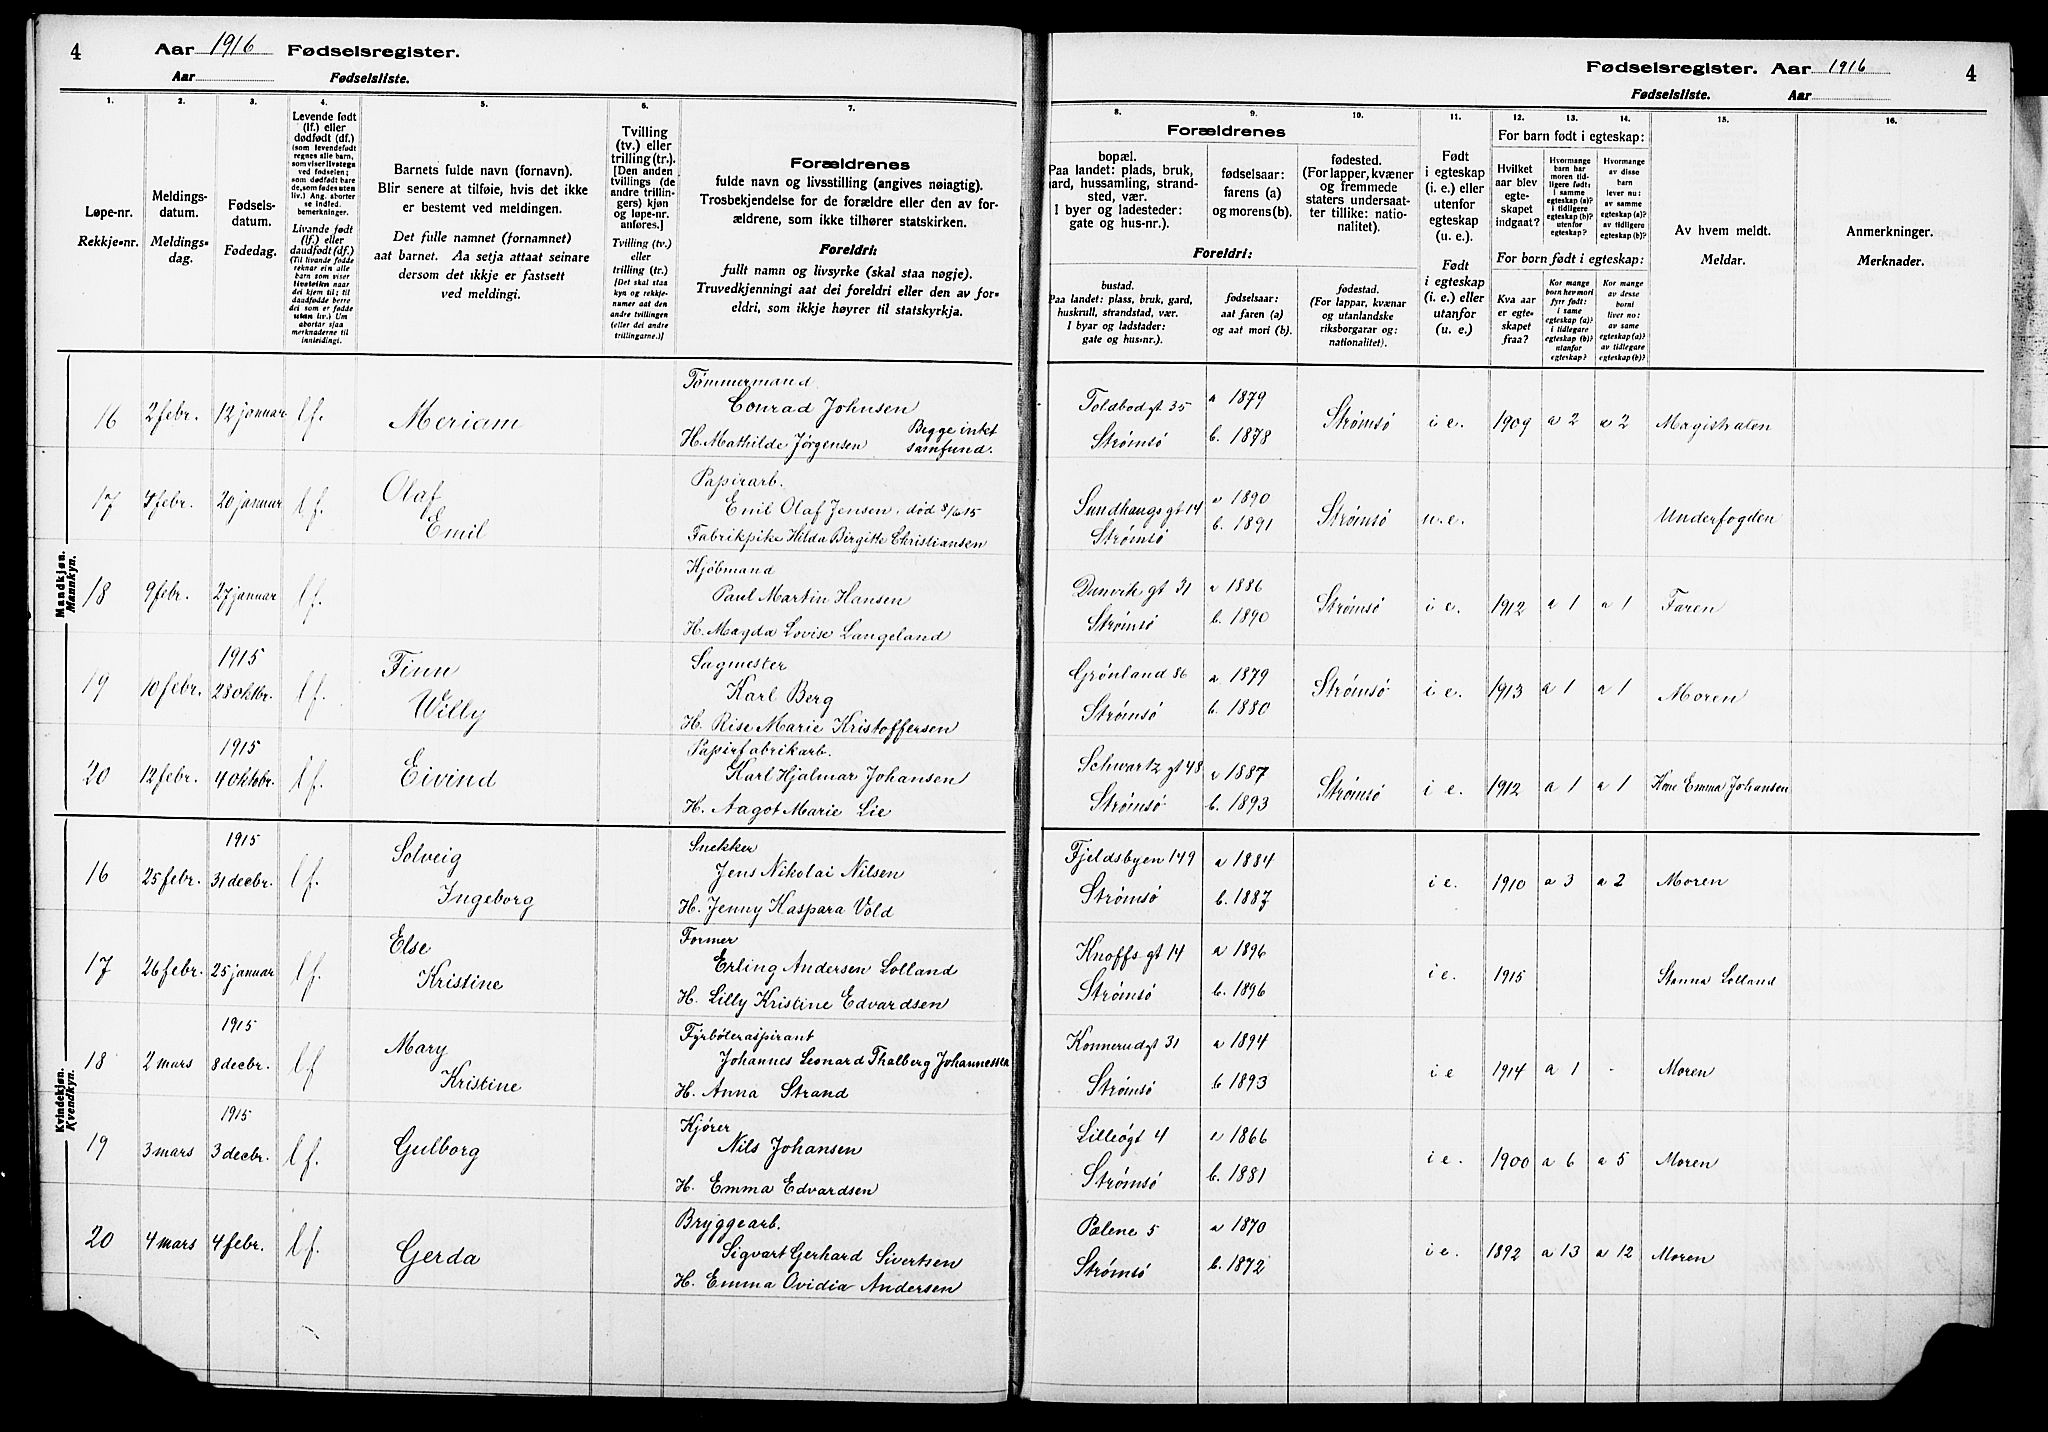 4
Aar 1916 Fødselsregister.
Aar Fødselsliste.
Fødselsregister. Aar 1916
4
Fødselsliste. Aar
1. 2. 3. 4. 5. 6. 7.
8. 9. 10. 11. 12. 13. 14. 15. 16.
Løpe-nr.
Rekkje-nr.
Meldings-
datum.
Meldings-
dag.
Fødsels-
datum.
Fødedag.
Levende født
(lf.) eller
dødfødt (df.)
(som levendefødt
regnes alle barn,
som viser livstegn
ved fødselen;
som dødfødt bare
de, som fødes uten
liv.) Ang. aborter
se indled.
bemerkninger.
Livande født
(lf.) eller
daudfødt (df.)
(Til livande fødde
reknar ein alle
barn som viser
livsteikn naar
dei kjem til; til
daudfødde berre
dei som er fødde
utan liv.) Um
abortar sjaa
merknaderne til
innleidingi.
Barnets fulde navn (fornavn).
Blir senere at tilføie, hvis det ikke
er bestemt ved meldingen.
Det fulle namnet (fornamnet)
aat barnet. Aa setja attaat seinare
dersom det ikkje er fastsett
ved meldingi.
Tvilling
(tv.) eller
trilling (tr.).
[Den anden
tvillings (de
andre trillin-
gers) kjøn
og løpe-nr.
anføres.]
Tvilling (tv.)
eller
trilling (tr.)
[Det skal staa
kyn og rekkje-
numer aat den
andre tvillingen
(eller dei andre
trillingarne.)]
Forældrenes
fulde navn og livsstilling (angives nøiagtig).
Trosbekjendelse for de forældre eller den av for-
ældrene, som ikke tilhører statskirken.
Foreldri:
fullt namn og livsyrke (skal staa nøgje).
Truvedkjenningi aat dei foreldri eller den av for-
eldri, som ikkje høyrer til statskyrkja.
Forældrenes
bopæl.
Paa landet: plads, bruk,
gaard, hussamling, strand-
sted, vær.
I byer og ladesteder:
gate og hus-nr.).
fødselsaar:
farens (a)
og morens (b).
fødested.
(For lapper, kvæner
og fremmede
staters undersaat-
ter tillike: natio-
nalitet).
Foreldri:
bustad.
Paa landet: plass, bruk, gard,
huskrull, strandstad, vær.
I byar og ladstader:
gate og hus-nr.).
fødselsaar:
aat faren (a)
og aat mori (b).
fødestad.
(For lappar, kvænar
og utanlandske
riksborgarar og:
nationalitet).
Født
i egteskap
(i. e.) eller
utenfor
egteskap
(u. e.).
Født
i egteskap
(i. e.) eller
utanfor
(u. e.).
For barn født i egteskap:
Hvilket
aar blev
egte-
skapet
indgaat?
Hvormange
barn har
moren tid-
ligere født:
i samme
egteskap (a)?
i tidligere
egteskap (b)?
utenfor
egteskap?
Hvormange
av disse
barn
lever nu:
av samme
egteskap (a)?
av tidligere
egteskap (b)?
For born født i egteskap:
Kva aar
er egte-
skapet
fraa?
Kor mange
born hev mori
fyrr født:
i same
egteskap (a)?
i tidlegare
egteskap (b)?
utanfor
egteskap?
Kor mange
av desse
borni
liver no:
av same
egteskap (a)?
av tidlegare
egteskap (b)?
Av hvem meldt.
Meldar.
Anmerkninger.
Merknader.
Mandkjøn.
Mannkyn.
16 2 febr. 12 januar lf. Meriam
Tømmermand
Conrad Johnsen
H. Mathilde Jørgensen Begge inkt
samfund.
Toldbodgt 35
Strømsø
a 1879
b. 1878
Strømsø i e. 1909 a 2 a 2 Magistraten
17 4 febr. 20 januar lf. Olaf
Emil
Papirarb.
Emil Olaf Jensen, død 8/6 15
Fabrikpike Hilda Birgitte Christiansen
Sundhaugsgt 14
Strømsø
a 1890
b. 1891
Strømsø u.e. Underfogden
18 9 febr. 27 januar lf.
Kjøbmand
Paul Martin Hansen
H. Magda Lovise Langeland
Dunvik gt 31
Strømsø
a 1886
b. 1890
Strømsø i e. 1912 a 1 a 1 Faren
19 10 febr. 1915
28 oktbr. lf. Finn
Willy
Sagmester
Karl Berg
H. Rise Marie Kristoffersen
Grønland 86
Strømsø
a 1879
b. 1880
Strømsø i e. 1913 a 1 a 1 Moren
20 12 febr. 1915
4 oktobr. lf. Eivind
Papirfabrikarb.
Karl Hjalmar Johansen
H. Aagot Marie Lie
Schwartz gt 48
Strømsø
a 1887
b. 1893
Strømsø i e. 1912 a 1 a 1 Kone Emma Johansen
Kvindekjøn.
Kvendkyn.
16 25 febr. 1915
31 decbr. lf. Solveig
Ingeborg
Snekker
Jens Nikolai Nilsen
H. Jenny Kaspara Vold
Fjeldsbyen 149
Strømsø
a 1884
b. 1887
i e. 1910 a 3 a 2 Moren
17 26 febr. 25 januar lf. Else
Kristine
Former
Erling Andersen Lolland
H. Lilly Kristine Edvardsen
Knoffs gt 14
Strømsø
a 1896
b. 1896
i e. 1915 Stanna Lolland
18 2 mars 1915
8 decbr. lf Mary
Kristine
Fyrbøteraspirant
Johannes Leonard Thalberg Johannessen
H. Anna Strand
Konnerudgt 31
Strømsø
a 1894
b 1893
i e 1914 a 1 - Moren
19 3 mars 1915
3 decbr. lf. Gulborg
Kjører
Nils Johansen
H. Emma Edvardsen
Lilleøgt 4
Strømsø
a 1866
b. 1881
i e. 1900 a 6 a 5 Moren
20 4 mars 4 febr. lf. Gerda
Bryggearb.
Sigvart Gerhard Sivertsen
H. Emma Ovidia Andersen
Pælene 5
Strømsø
a 1870
b. 1872
i e. 1892 a 13 a 12 Moren